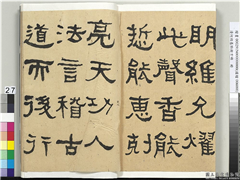 明維允燿
此聲香能
悊能惠剋
亮天功人
法言稽古
道而後行
27